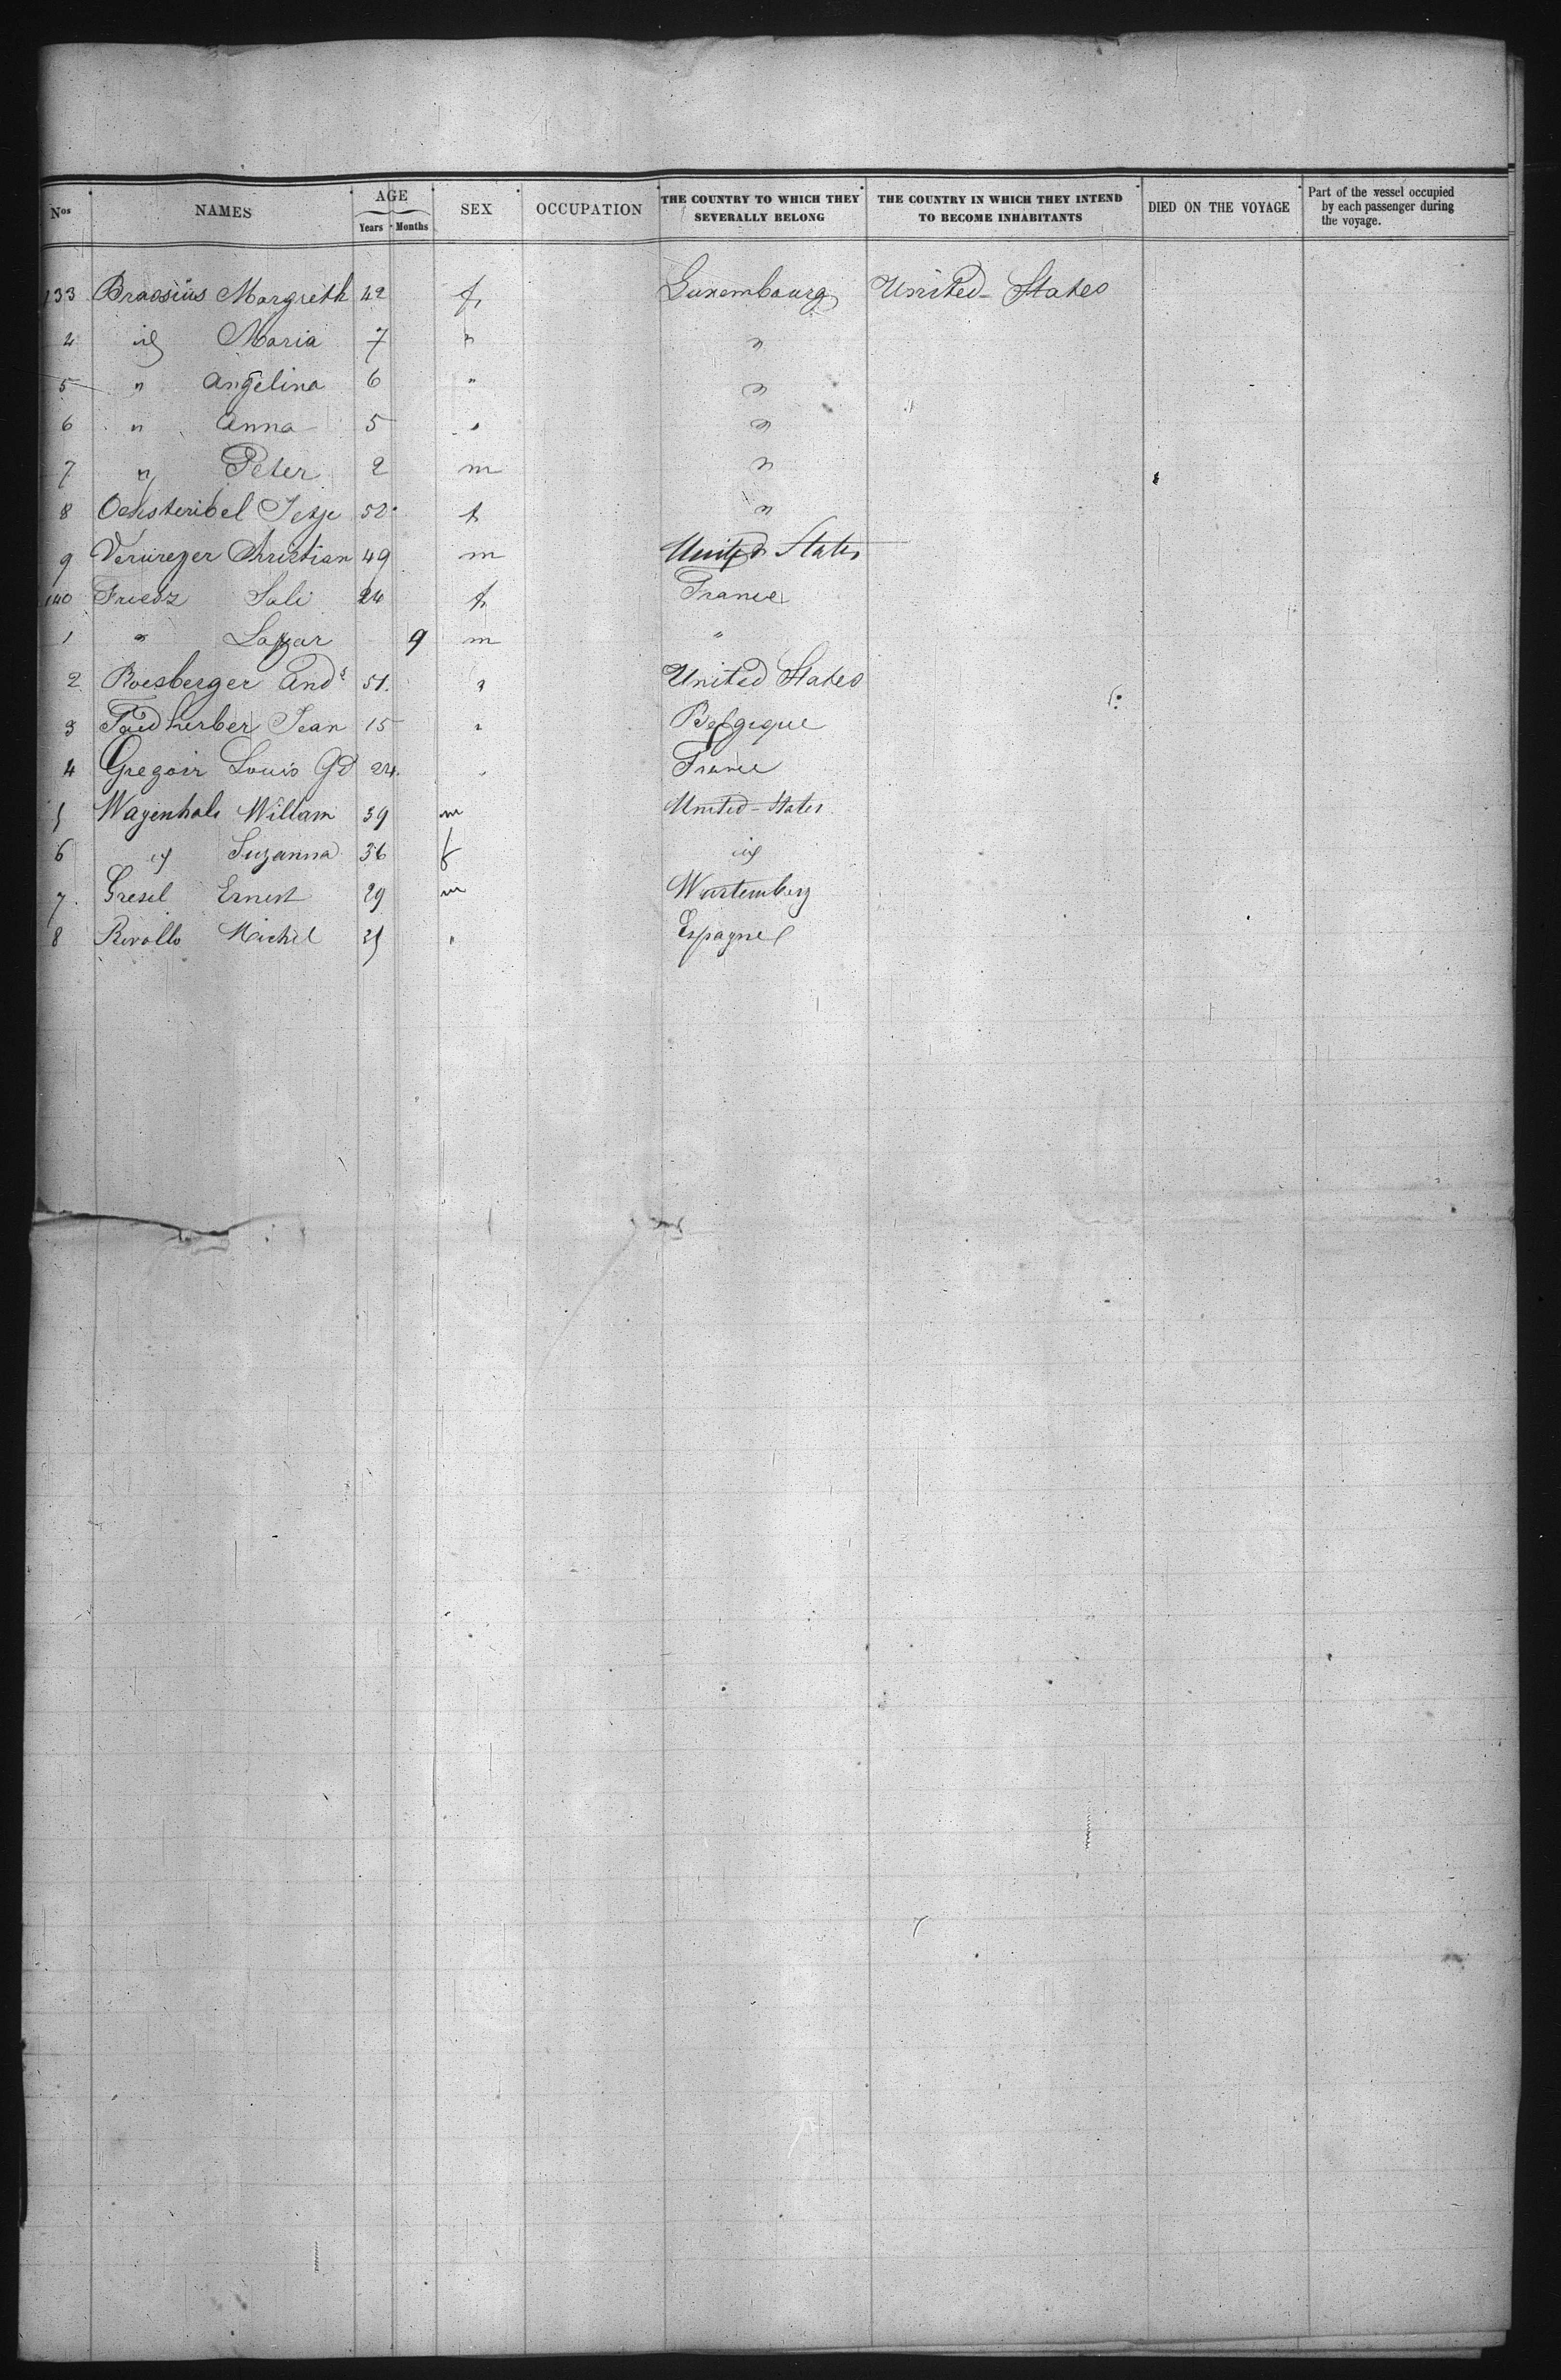 Nos NAMES AGE Years Months SEX OCCUPATION THE COUNTRY TO WHICH THEY SEVERALLY BELONG THE COUNTRY IN WHICH THEY INTEND TO BECOME INHABITANTS DIED ON THE VOYAGE Part of the vessel occupied by each passenger during the voyage.
133 Braosius Margreth 42 f Luxembourg United-States
4 id Maria 7 " "
5 " Angelina 6 " "
6 " Anna 5 " "
7 " Peter 2 m "
8 52 f "
9 Christian 49 m United States
140 Friedz Sali 24 f France
1 " Lazar 9 m "
2 Roesberger And 51 " United States
3 Faidherber Jean 15 " Belgique
4 Gregoir Louis Gd 24 " France
5 Wagenhals Willam 39 m United-States
6 id Suzanna 36 f id
7 Gresel Ernest 29 m Wurtemberg
8 Rivollo Michel " Espagne